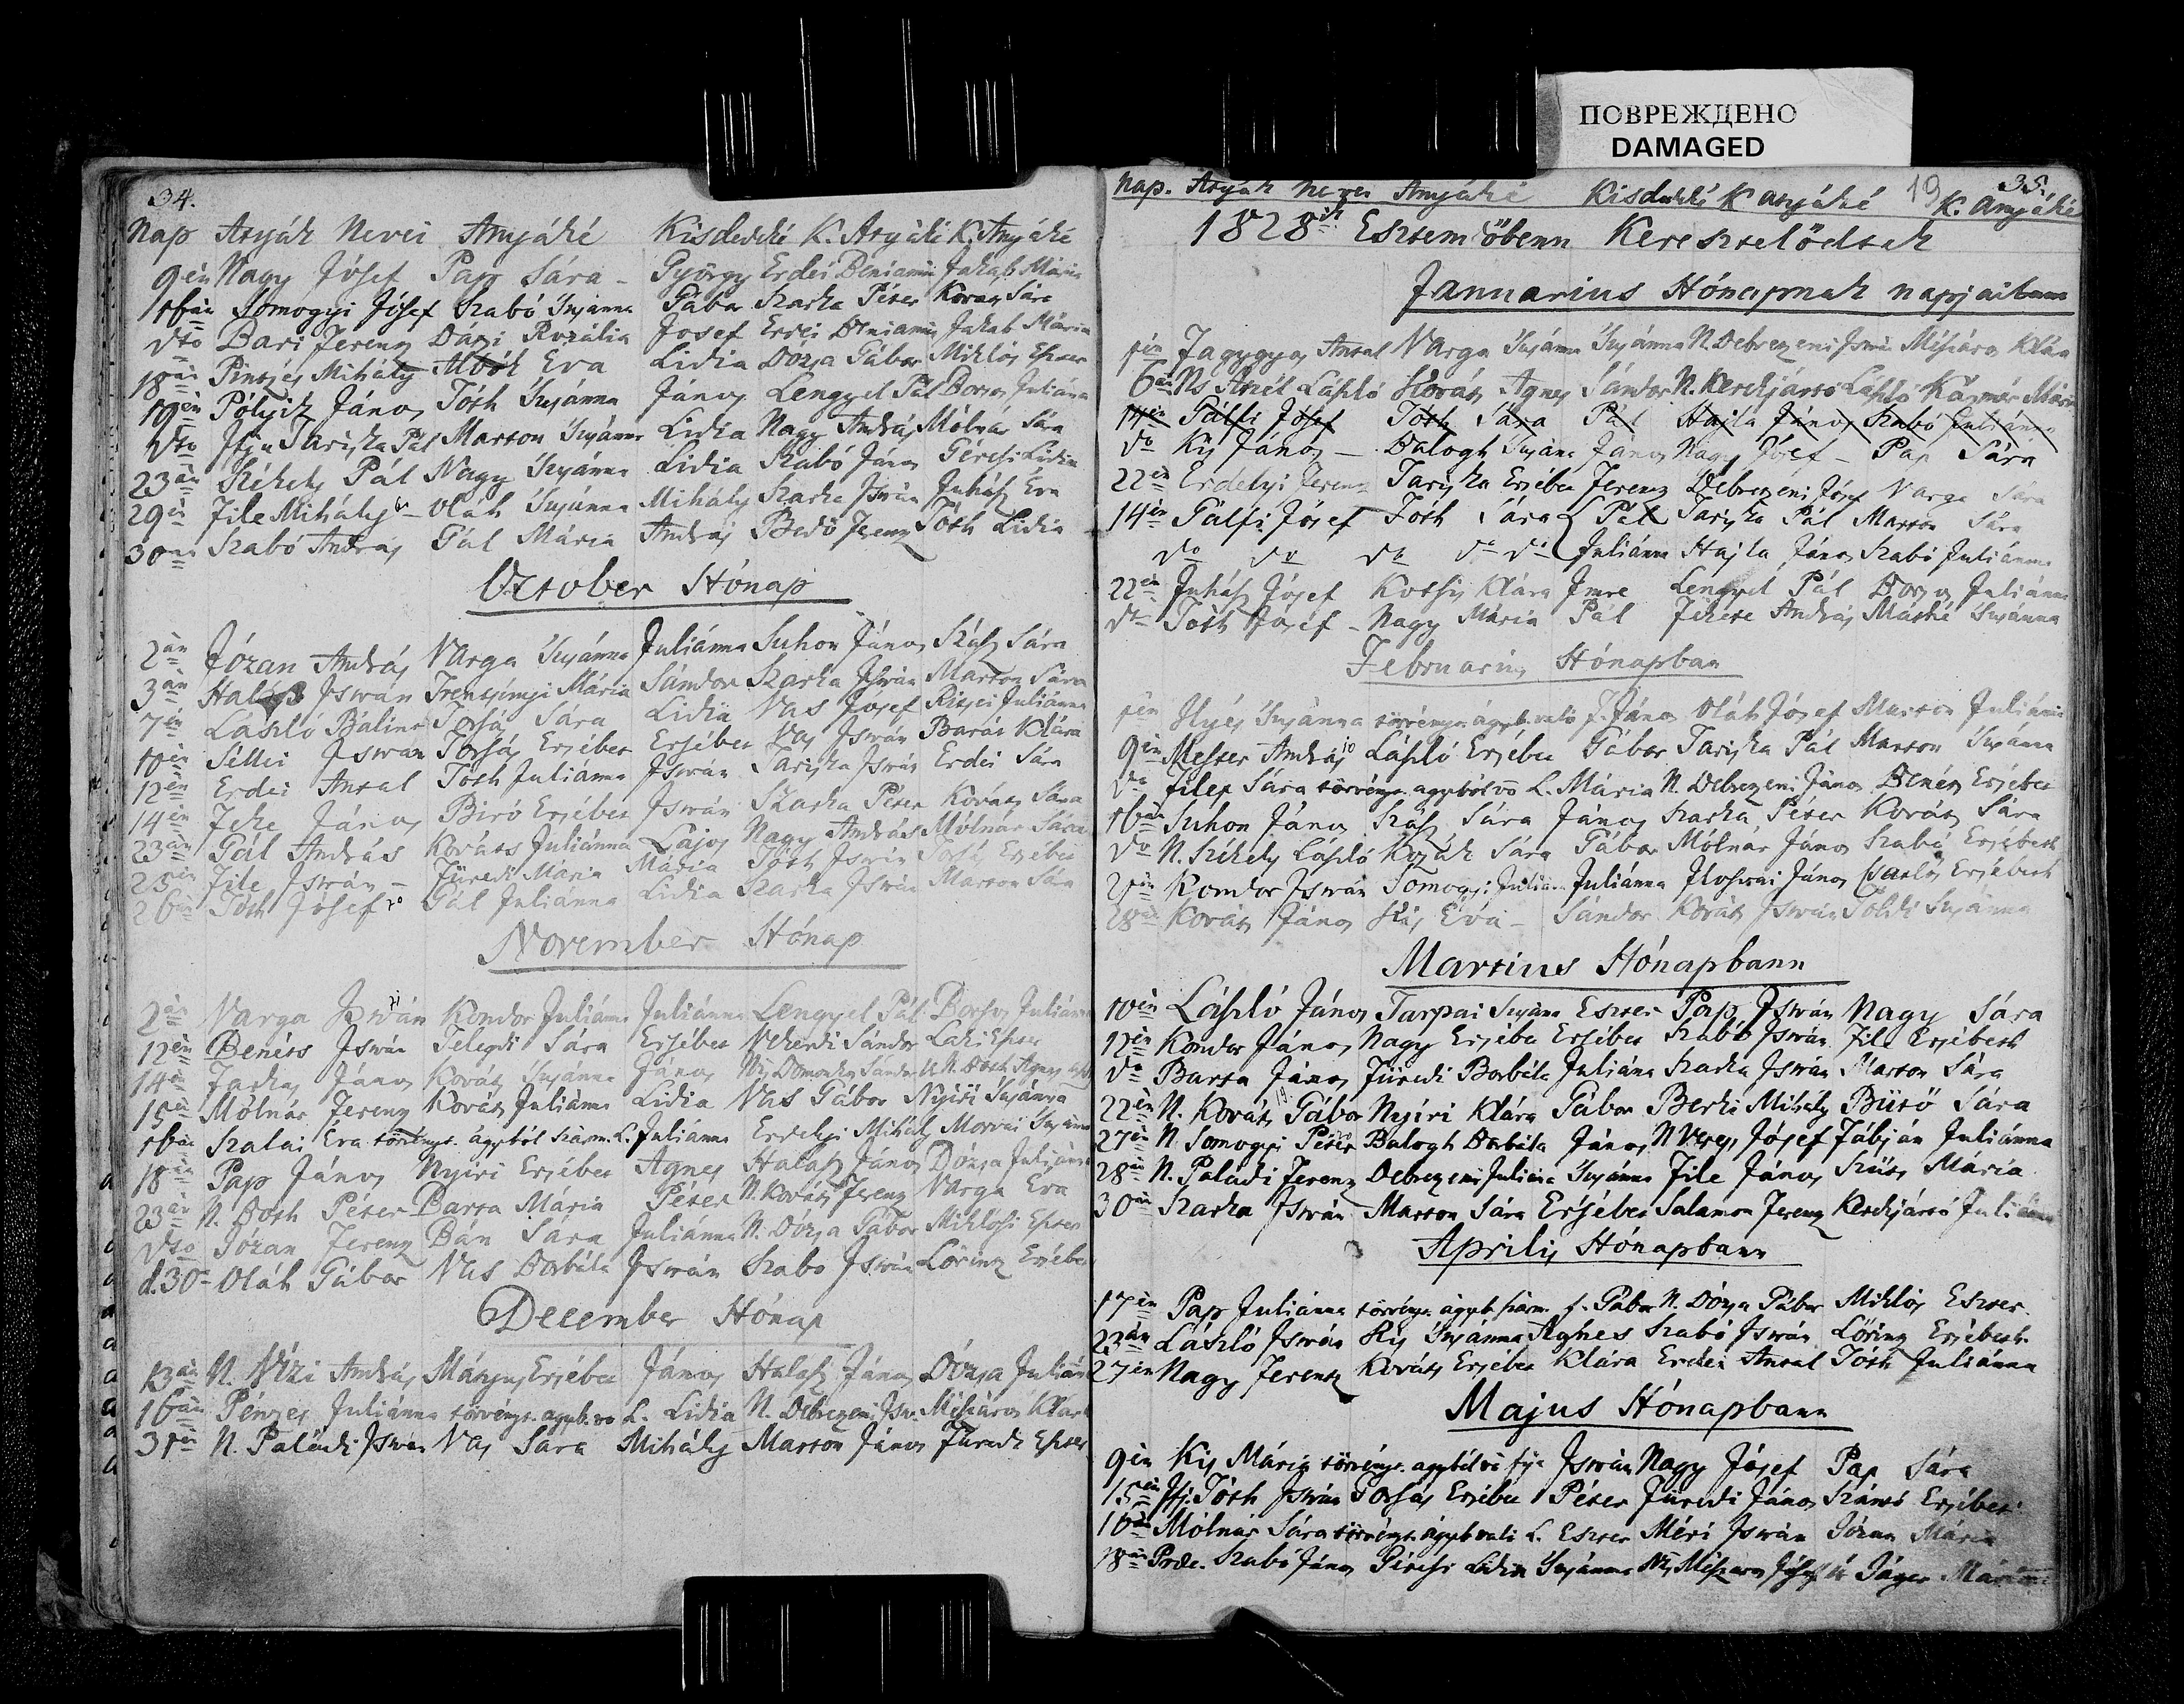 ПОВРЕЖДЕНО
DAMAGED
34.
Nap Atyák Nevei Anyáké Kisdedké K. Atyáké K. Anyáké
9én Nagy Jósef Pap Sára - György Erdei Beniamin Jakab Mária
16án Somogyi Jósef Szabó Susánna Gábor Szarka Péter Kováts Sára
dto Bari Ferentz Dági Rozália Josef Erdei Beniamin Jakab Mária
18án Pintzés Mihály Éva Lidia Dózsa Gábor Miklós Eszter
19én János Tóth Susánna János Lengyel Pál Borsos Juliánna
dto Ifju Tariska Pál Marton Susánna Lidia Nagy András Mólnár Sára
23án Székely Pál Nagy Susánna Lidia Szabó János Lidia
29én File Mihály Oláh Susánna Mihály Szarka István Juhász Éva
30án Szabó András Gál Mária András Bedő Ferentz Tóth Lidia
October Hónap
2án Józan András Varga Susánna Juliánna Suhon János Szász Sára
3án István Trentsinyi Mária Sándor Szarka István Marton Sára
7én László Bálint Forsá Sára Lidia Vas Josef Juliánna
10én István Forsás Ersébet Ersébet Vas István Barát Klára
12én Erdei Antal Tóth Juliánna István Tariska István Erdei Sára
14én Feke János Biró Ersébet István Szarka Péter Kováts Sára
23án Gál András Kováts Juliánna Lajos Nagy András Mólnár Sára
25én File István - Füredi Mária Mária Tóth István Ersébet
26án Tóth Jósef Gál Juliánna Lidia Szarka István Marton Sára
November Hónap
2án Varga István Kondor Juliánna Juliánna Lengyel Pál Borsos Juliánna
12én Benéts István Telegdi Sára Ersébet Vekerdi Sándor Laki Eszter
14én Farkas János Kováts Susánna János Domonkos Sándor
15én Mólnár Ferentz Kováts Juliánna Lidia Vas Gábor Nyiri Susánna
16án Szalai Éva törvényt. ágyból szárm. L. Juliánna Erdélyi Mihály Morvai Susánna
18án Pap János Nyiri Ersébet Agnes Halász János Dózsa Juliánna
23án N. Both Péter Barta Mária Péter N. Kováts Ferentz Varga Éva
dto Józan Ferentz Bán Sára Juliánna N. Dózsa Gábor Miklósi Eszter
d. 30- Oláh Gábor Vas Borbála István Szabo István Lörintz Ersébet
December Hónap
13án N. Vizi András Mányus Ersébet János Halász János Dózsa Juliánna
16án Pénzes Juliánna törvényt. agyb. L. Lidia N. Debretzeni Istv. Mészáros Klára
31én N. Paládi István Vas Sára Mihály Marton János Füredi Eszter
19 35.
Nap. Atyák Nevei Anyáké Kisdedké K atyáké K. Anyáké
1828ik Esztendőbenn Keresztelődtek
Januarius Hónapnak napjaiban
Antal Varga Susánna Susánna N. Debretzeni István Mészáros Klára
6án László Kováts Agnes Sándor N. Kerekjártó László Kázmér Mária
14én Gálfi Jósef Toth Sára Pál Hajla János Szabó Juliánna
do Kis János - Balogh Susána János Nagy Jósef - Pap Sára
22én Erdélyi Ferentz Tariska Ersébet Ferentz Debretzeni Jósef Varga Sára
14én Gálfi Jósef Tóth Sára { Pál Tariska Pál Marton Sára
do do do do do Juliánna Hajla János Szabó Juliánna
22én Juhász Jósef Kotsis Klára Imre Lengyel Pál Borsos Juliánna
do Tóth Jósef - Nagy Mária Pál Fekete András Máthé Susánna
Februarius Hónapban
Illyés Susánna törvényt. ágyb. való f. János Oláh Jósef Marton Juliánna
9én Mester András László Ersébet Gábor Tariska Pál Marton Susánna
do Filep Sára törvényt. agyból L. Mária N. Debretzeni János Benéts Ersébet
16án Suhon János Szász Sára János Szarka Péter Kováts Sára
do N. Székely László Kozák Sára Gábor Mólnár János Szabó Ersébeth
21én Kondor István Somogyi Juliánna Juliánna Ilosvai János Ersébeth
28án Kováts János Kis Éva - Sándor Kováts István Földi Susánna
Martius Hónapbann
10én László János Tarpai Susána Eszter Pap István Nagy Sára
12én Kondor János Nagy Ersébet Ersébet Szabó István File Ersébeth
do Barta János Füredi Borbála Juliána Szarka István Marton Sára
22én N. Kováts Gábor Nyiri Klára Gábor Berki Mihály Bütö Sára
27én N. Somogyi Péter Balogh Borbála János N Veres Jósef Fábján Juliánna
28án N. Paládi Ferentz Debretzeni Juliána Susánna File János Szüts Mária
30án Szarka István Marton Sára Ersébet Salamon Ferentz Kerekjártó Juliánna
Aprilis Hónapbann
17én Pap Juliánna törvényt. ágyb. szárm. f. Gábor N. Dózsa Gábor Miklós Eszter
23án László István Kis Susánna Aghnes Szabó István Lörintz Ersébeth
27én Nagy Ferentz Kováts Ersébet Klára Erdei Antal Tóth Juliánna
Majus Hónapbann
9én Kis Mária törvényt. agyból fija István Nagy Jósef Pap Sára
15én Ifj. Tóth István Forsás Ersébet Péter Füredi János Szántó Ersébet
Mólnár Sára törvényt. ágyb. való L. Eszter Méri István Józan Mária
18án Szabó János Lidia Susánna Mészáros Jósef Jáger Mária